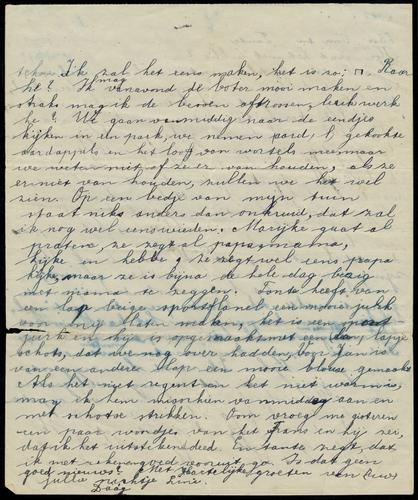 Ik zal het eens maken, het is zo: Raar
hè? Ik mag vanavond de boter mooi maken en
straks mag ik de bessen afrossen, leuk werk
hè? We gaan vanmiddag naar de eendjes
kijken in een park, we nemen paard, gekookte
aardappels en het loof van wortels mee maar
we weten niet of ze er van houden, als ze
er niet van houden, zullen we het wel
zien. Op een bedje van mijn tuin
staat niks anders dan onkruid, dat zal
ik nog wel eens wieden. Marijke gaat al
praten, ze zegt al papa mama,
kijke en hebbe, ze zegt wel eens papa
kijke, maar ze is bijna de hele dag bezig
met mama te zeggen. Tante heeft van
een lap beige sportflanel een mooie jurk
voor mij laten maken, het is een
jurk en hij is opgemaakt met een lapje
schots, dat we nog over hadden, voor Jan is
van een andere lap een mooie blouse gemaakt
Als het niet regent en het niet warm is,
mag ik hem misschien vanmiddag aan en
met schotse strikken. Oom vroeg me gisteren
een paar woordjes van het Frans en hij zei,
dat ik het uitstekend deed. En tante zegt, dat
ik met rekenen goed vooruit ga. Is dat geen
goed nieuws? Met hartelijke groeten van
jullie nichtje
Daag